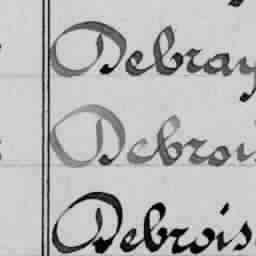 Debray
Debrois
Debrois